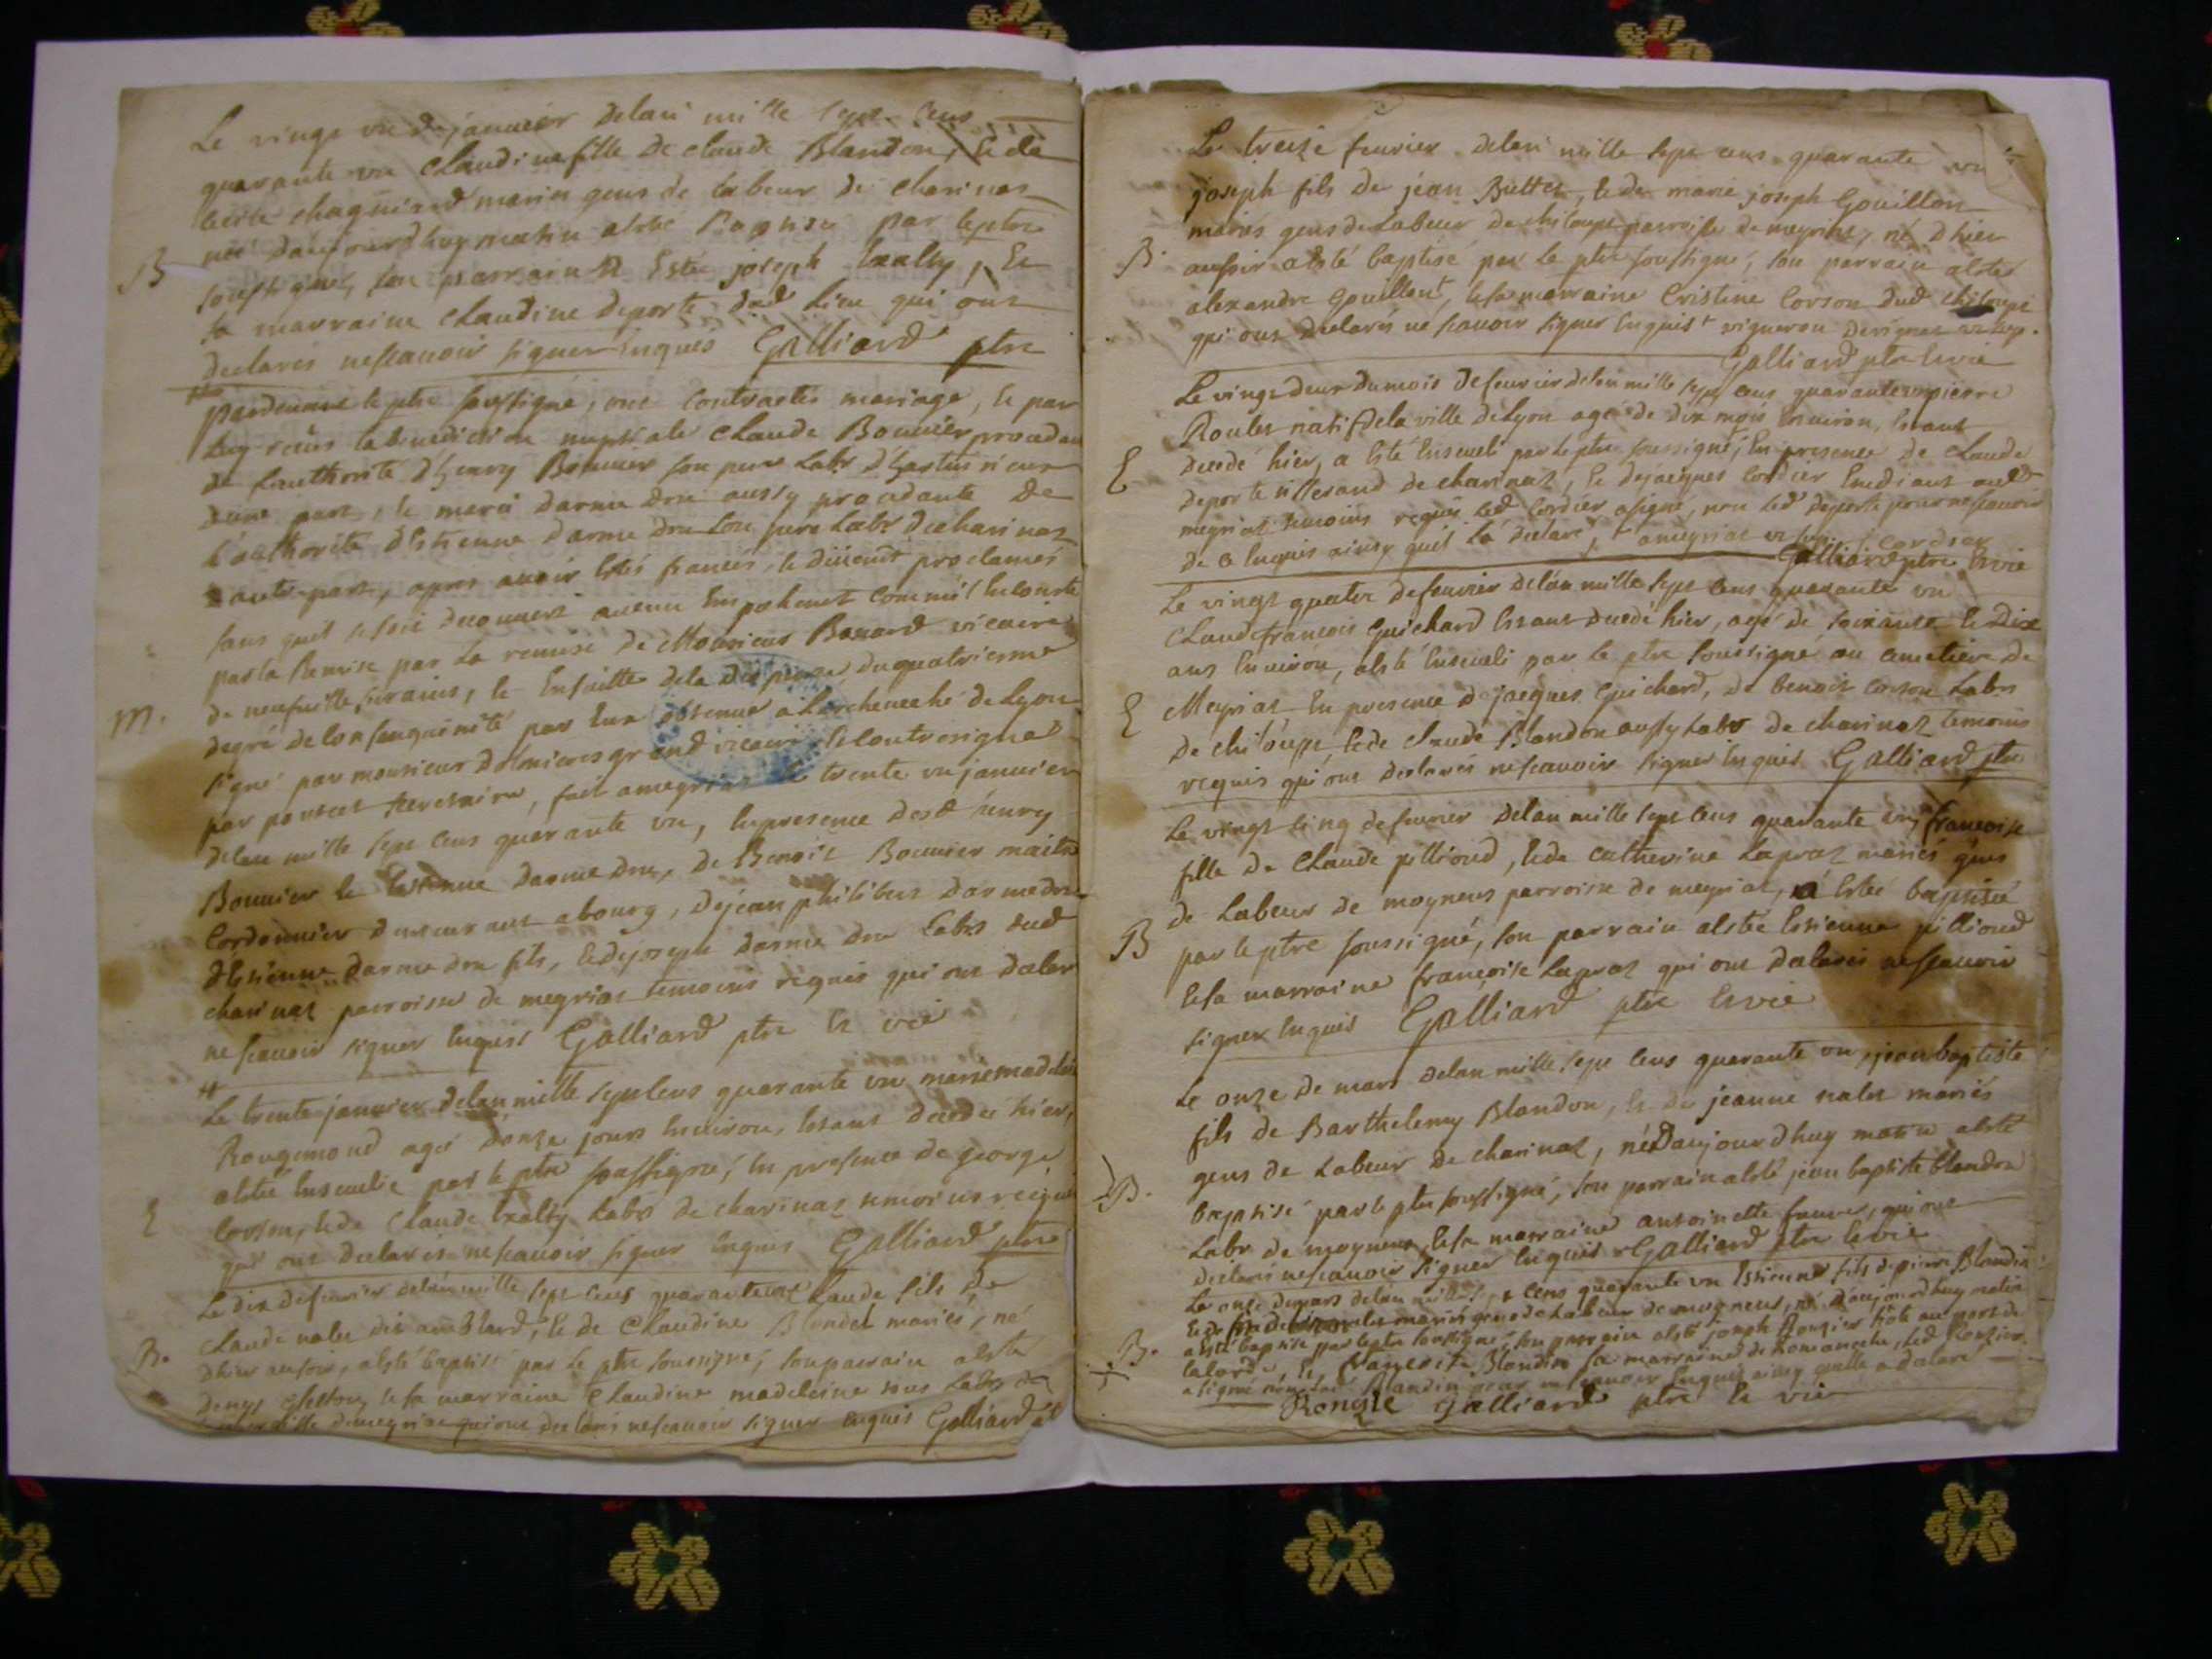 Le vingt un de janvier delan mille sept cens
quarante un Claudine fille De claude Blandon, & de
mariés gens de labeur de charinas
née daujourdhuy matin a esté Baptisée par le ptre
soussigné, son parrain A Esté joseph , Et
sa marraine Claudine deporte dud lieu qui ont
declarés nescavoir signer enquis Galliard ptre
B
pardevant le ptre soussigné, ont contractés mariage, & par
luy receus la benediction nuptiale Claude Bouvier procedant
de Lauthorité d'henry Bouvier son pere Labr
dune part, & marie darmedru aussy procedante De
L'authorité dEstienne darmedru son pere Labr de charinas
dautre part, apres avoir estés fiancés, & duement proclamés
sans quil se soit decouvert aucun Empechement comme il conste
par la Remise de Monsieur vicaire
de neufville , & Ensuitte dela dispense du quatriesme
degré de Consanguinité par Eux obtenue a Larcheveché de Lyon
signé par monsieur grand vicaire & contresigné
par secretaire, fait a meyrias le trente un janvier
delan mille sept cens quarante un, En presence desd henry
Bouvier & Estienne darmedru, de Benoit Bouvier maitre
Cordonnier demeurant a bourg, de jean philibert darmedru
d'Estienne darmedru fils, & de joseph darmedru Labrs dud
charinas parroisse de meyrias temoins requis qui ont declaré
ne scavoir signer enquis Galliard ptre & vic
m.
Le trente janvier delan mille sept cens quarante un marie madelaine
Rougemond agée donze jours Environ, Estant decedée hier,
a esté Ensevelie par le ptre soussigné, En presence de george
Corson, & de Claude Labrs de charinas temoins requis
qui ont declarés nescavoir signer enquis Galliard ptre
E
Le dix de fevrier delan mille sept cens quarante un Claude fils De
Claude nalet dit , & de Claudine Blondel mariés, né
dhier au soir, a esté baptisé par Le ptre soussigné, son parrain a esté
denys , & sa marraine Claudine madeleine tous Labrs
de meyrias qui ont declarés nescavoir signer enquis Galliard
B.
Le treize fevrier delan mille sept cens quarante un
joseph fils de jean Buttet, & de marie joseph Gouillon
mariés gens de Labeur de chiloupt parroisse de meyrias, né d hier
au soir a esté baptisé par Le ptre soussigné, son parrain a esté
alexandre Gouillont, & sa marraine Cristine Corson dud chiloupt
qui ont declarés nescavoir signer Enquis vigneron
Galliard ptre & vic
B.
Le vingt deux du mois de fevrier delan mille sept cens quarante un pierre
Roulet natif de la ville de Lyon agé de dix mois Environ, Estant
decedé hier, a Esté Enseveli par le ptre soussigné, En presence de Claude
deporte tisserand de charinas, & de jacques Cordier aud
meyrias temoins requis Led Cordier a signé, non led deporte pour nescavoir
de ce Enquis ainsy quil La declaré, Cordier
Galliard ptre & vic
E
Le vingt quatre de fevrier delan mille sept cens quarante un
Claud francois Guichard Estant decedé hier, agé de soixante & Dix
ans Environ, a esté Enseveli par le ptre soussigné au cimetiere de
Meyrias En presence de jacques Guichard, de benoit corson Labrs
de chiloupt, & de claude Blandon aussy Labr de charinas temoins
requis qui ont declarés nescavoir signer Enquis Galliard ptre
E
Le vingt cinq de fevrier delan mille sept cens quarante un, francoise
fille de Claude pillioud, & de catherine Lapras mariés gens
de Labeur de moyneus parroisse de meyrias, a Esté baptisée
par le ptre soussigné, son parrain a esté Estienne pillioud
& sa marraine françoise Lapras qui ont declarés nescavoir
signer Enquis Galliard ptre & vic
B
Le onze de mars delan mille sept cens quarante un, jean baptiste
fils de Barthelemy Blandon, & de jeanne nalet mariés
gens de Labeur de charinas, né daujourdhuy matin a esté
baptisé par le ptre soussigné, son parrain a esté jean baptiste blandon
Labr de moyneus, & sa marraine antoinette , qui ont
declaré nescavoir signer enquis Galliard ptre & vic
B.
Le onze de mars delan mille sept cens quarante un Estienne fils de pierre Blandin
& de nalet mariés gens de Labeur de moyneus, né daujourdhuy matin
a esté baptisé par le ptre soussigné, son parrain a esté joseph Ronzier hôte au port de
& Blandin sa marraine , led Ronzier
a signé non lad Blandin pour nescavoir Enquis ainsy quelle a declaré
Galliard ptre & vic
B.